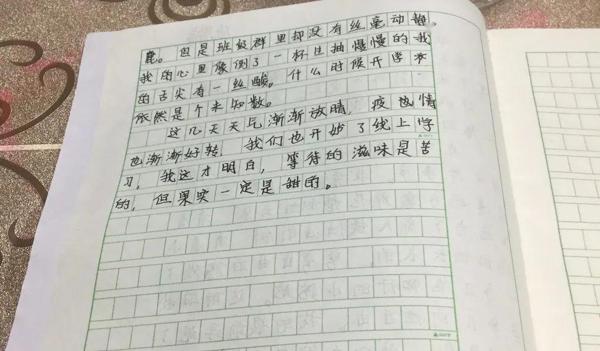 鹿。但是班级群里却没有丝毫动静。
我的心里像倒了一杯慢慢的我
的舌尖有一丝酸。什么时候开学
依然是个未知数。
这几天天气渐渐放晴，疫也情
也渐渐好转，我们也开始了线上学
习，我这才明白，等待的滋味是苦
的，但果实一定是甜的。